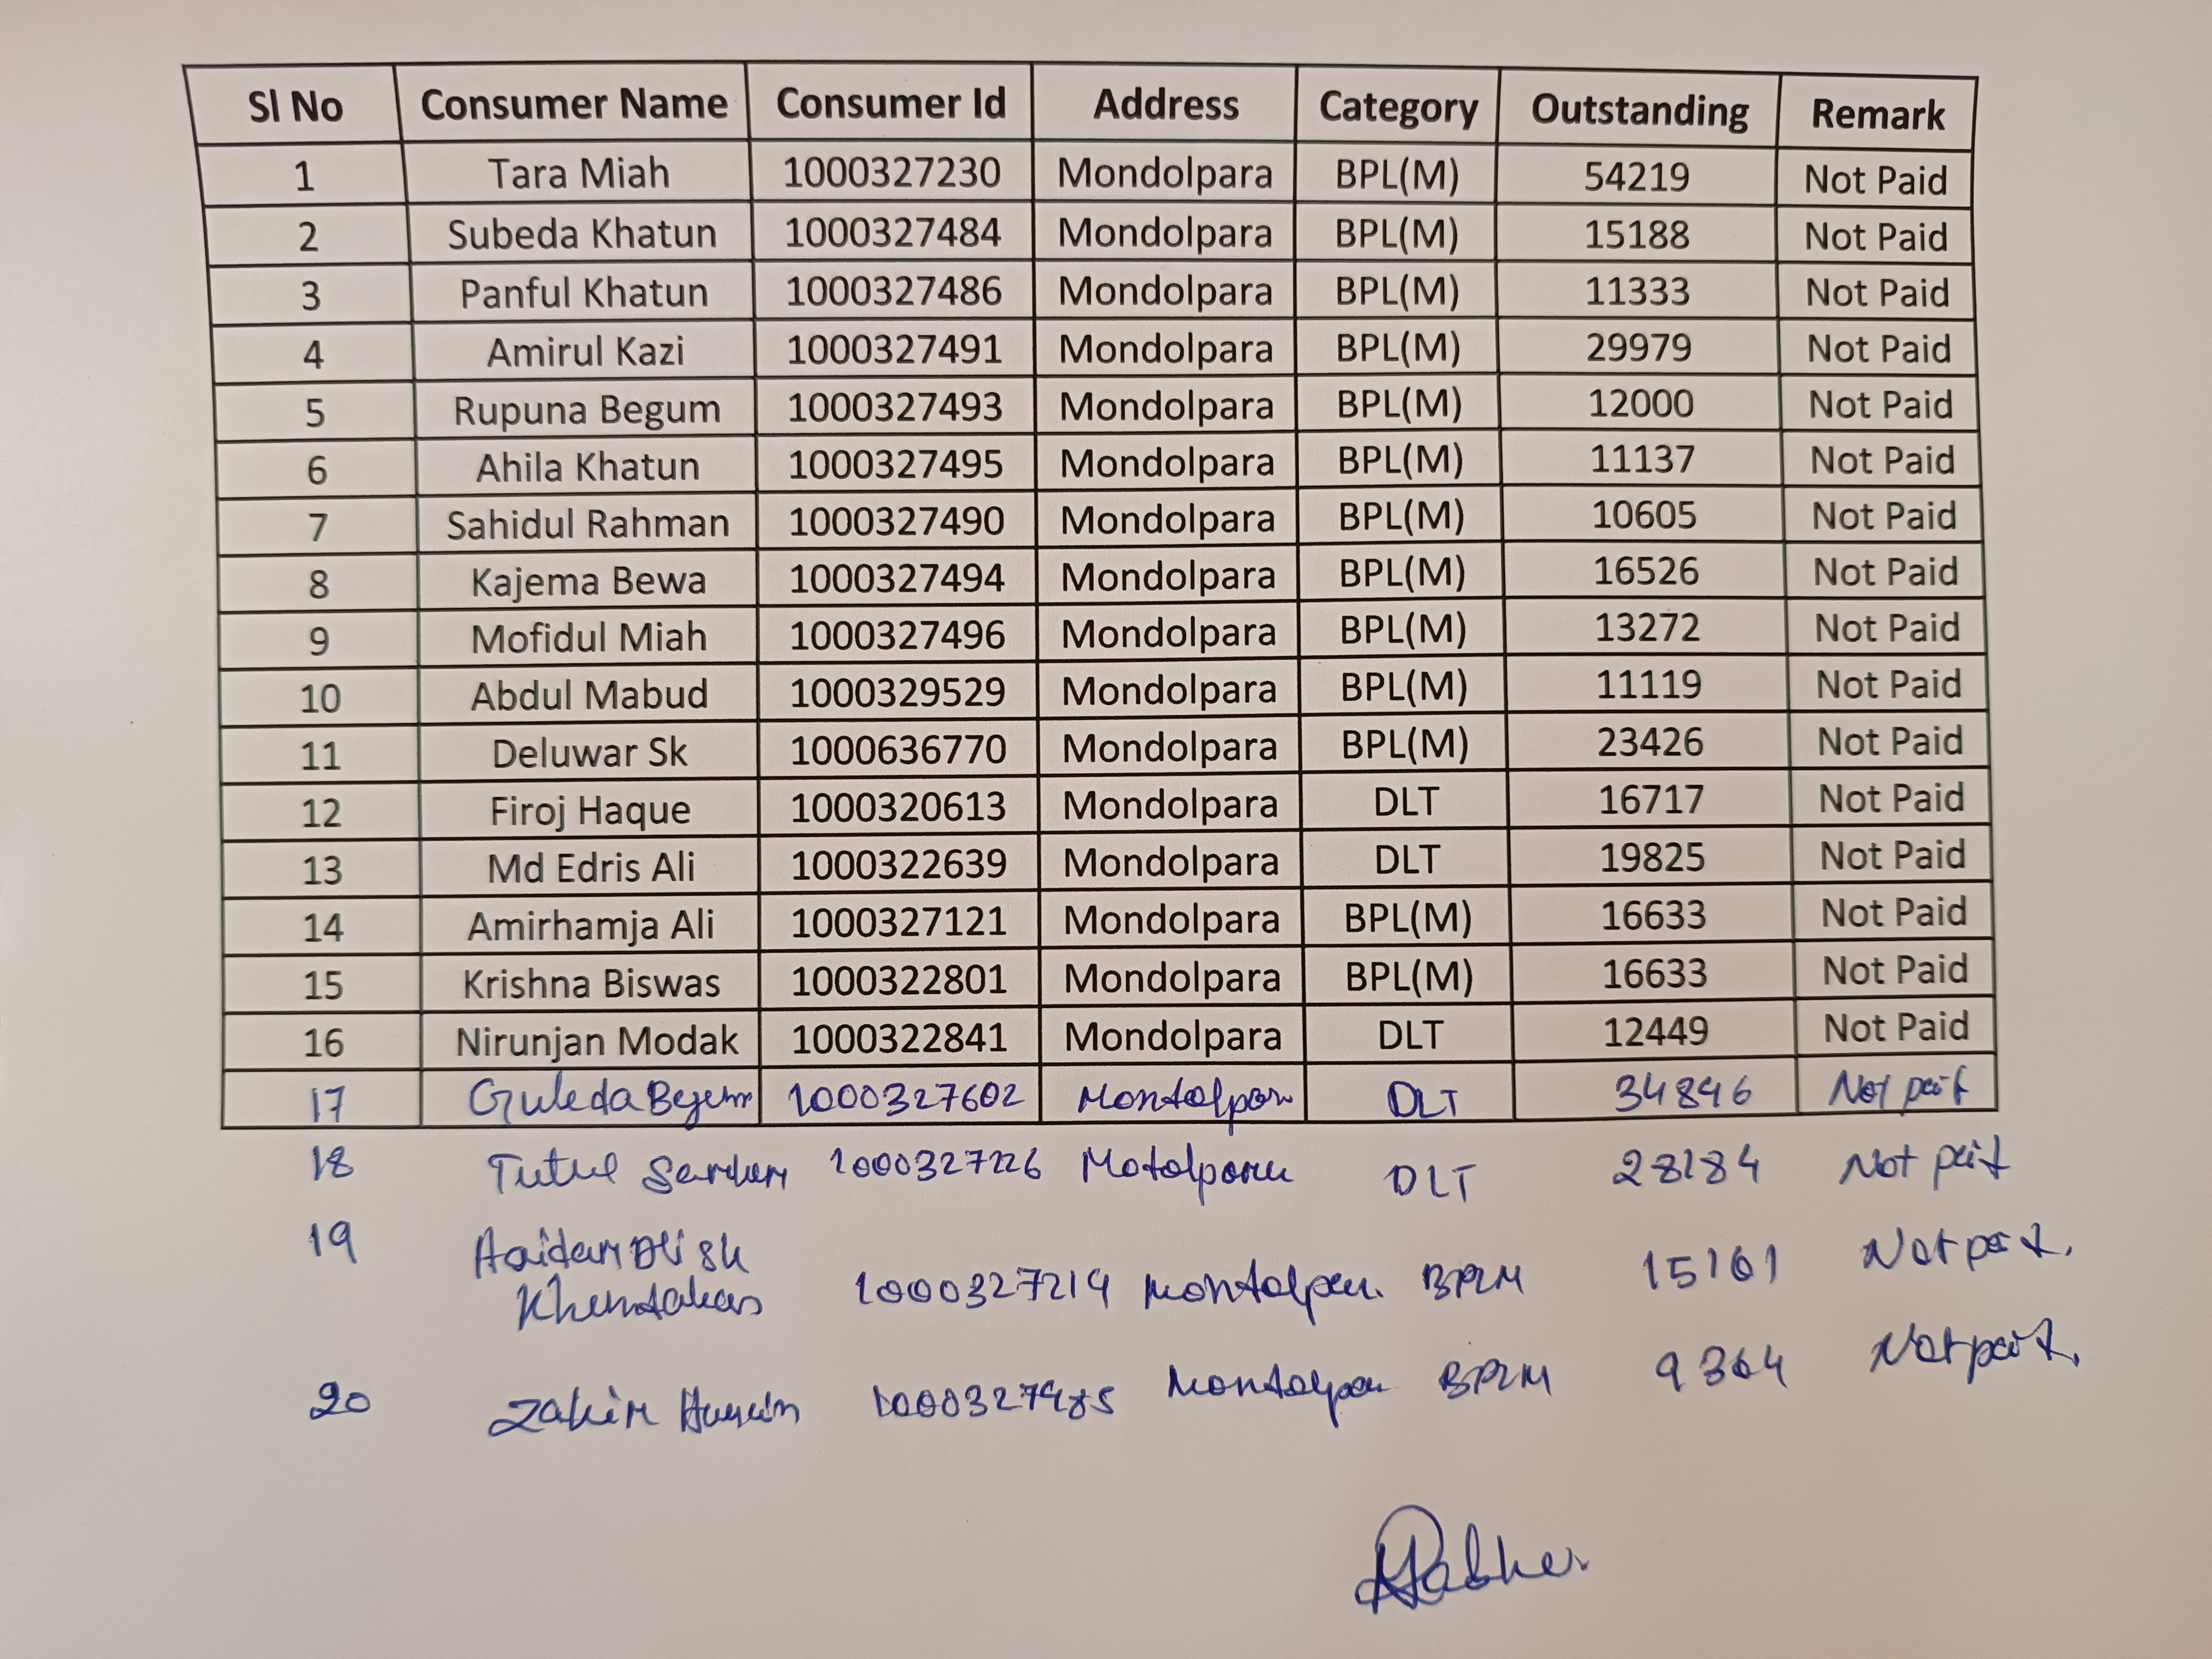 Sl No Consumer Name Consumer Id Address Category Outstanding Remark
1 Tara Miah 1000327230 Mondolpara BPL(M) 54219 Not Paid
2 Subeda Khatun 1000327484 Mondolpara BPL(M) 15188 Not Paid
3 Panful Khatun 1000327486 Mondolpara BPL(M) 11333 Not Paid
4 Amirul Kazi 1000327491 Mondolpara BPL(M) 29979 Not Paid
5 Rupuna Begum 1000327493 Mondolpara BPL(M) 12000 Not Paid
6 Ahila Khatun 1000327495 Mondolpara BPL(M) 11137 Not Paid
7 Sahidul Rahman 1000327490 Mondolpara BPL(M) 10605 Not Paid
8 Kajema Bewa 1000327494 Mondolpara BPL(M) 16526 Not Paid
9 Mofidul Miah 1000327496 Mondolpara BPL(M) 13272 Not Paid
10 Abdul Mabud 1000329529 Mondolpara BPL(M) 11119 Not Paid
11 Deluwar Sk 1000636770 Mondolpara BPL(M) 23426 Not Paid
12 Firoj Haque 1000320613 Mondolpara DLT 16717 Not Paid
13 Md Edris Ali 1000322639 Mondolpara DLT 19825 Not Paid
14 Amirhamja Ali 1000327121 Mondolpara BPL(M) 16633 Not Paid
15 Krishna Biswas 1000322801 Mondolpara BPL(M) 16633 Not Paid
16 Nirunjan Modak 1000322841 Mondolpara DLT 12449 Not Paid
17 Guleda 1000327602 DLT 34896 Not
18 Tutul 1000327226 DLT 28184 Not
19 sk
1000327219 BPLM 15161 Not
20 Zakir BPLM 9364 Not